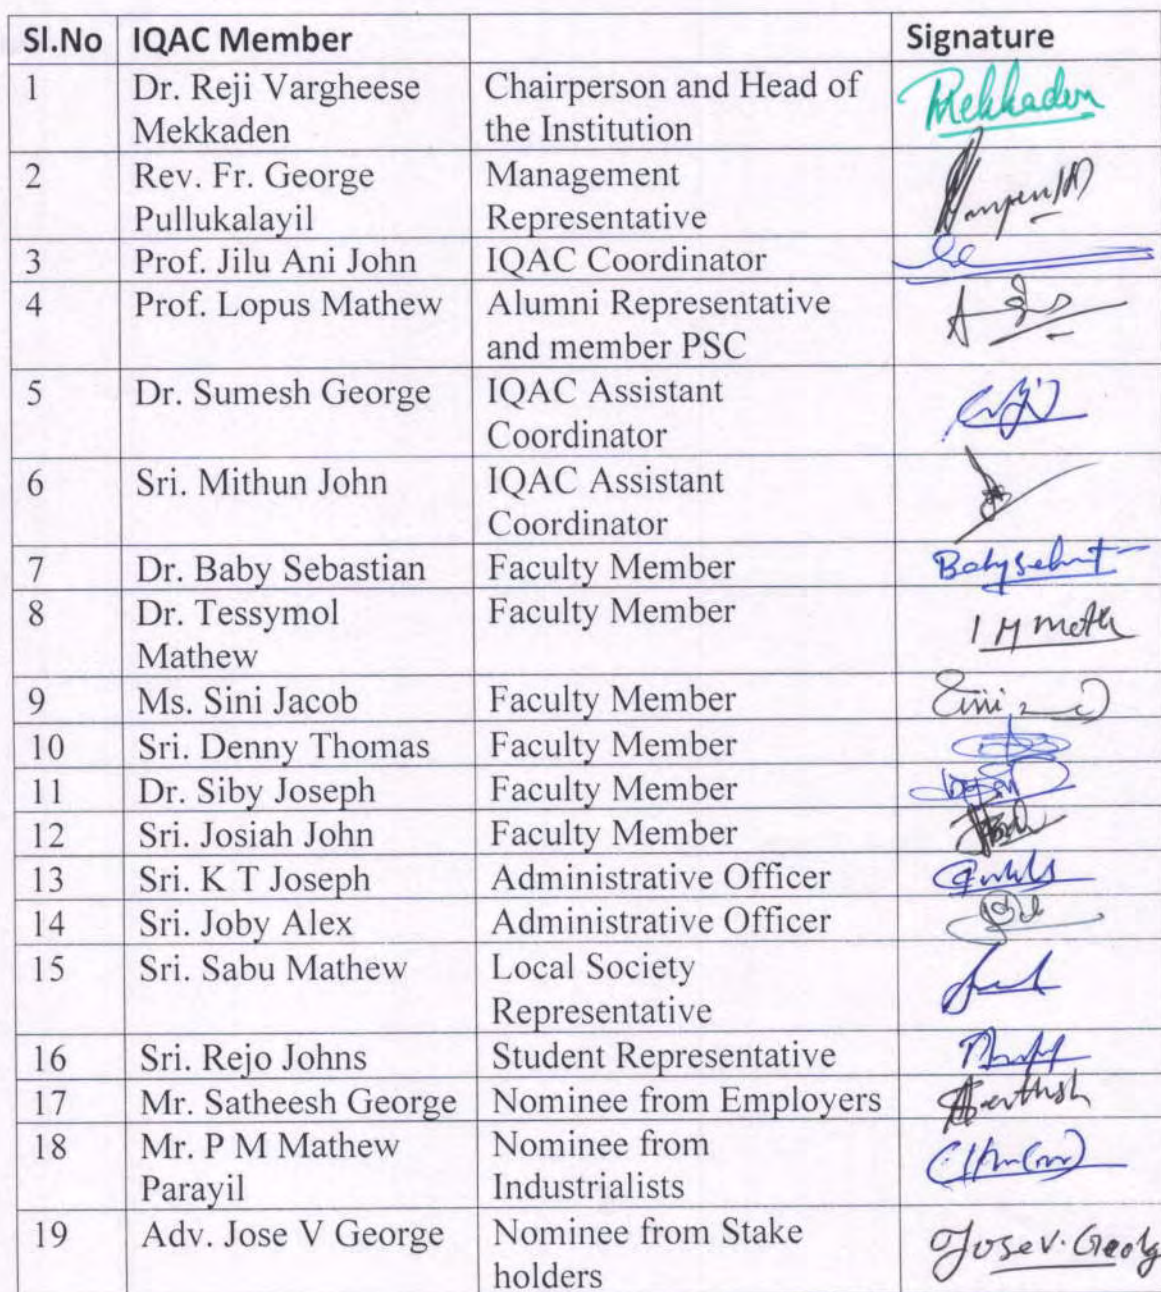 Sl.No IQAC Member Signature
1 Dr. Reji Vargheese Chairperson and Head of Mekkaden
Mekkaden the Institution
2 Rev. Fr. George Management
Pullukalayil Representative
3 Prof. Jilu Ani John IQAC Coordinator
4 Prof. Lopus Mathew Alumni Representative
and member PSC
5 Dr. Sumesh George IQAC Assistant
Coordinator
6 Sri. Mithun John IQAC Assistant
Coordinator
7 Dr. Baby Sebastian Faculty Member
8 Dr. Tessymol Faculty Member
Mathew
9 Ms. Sini Jacob Faculty Member
10 Sri. Denny Thomas Faculty Member
11 Dr. Siby Joseph Faculty Member
12 Sri. Josiah John Faculty Member
13 Sri. K T Joseph Administrative Officer
14 Sri. Joby Alex Administrative Officer
15 Sri. Sabu Mathew Local Society
Representative
16 Sri. Rejo Johns Student Representative
17 Mr. Satheesh George Nominee from Employers
18 Mr. P M Mathew Nominee from
Parayil Industrialists
19 Adv. Jose V George Nominee from Stake Jose V. Georg
holders